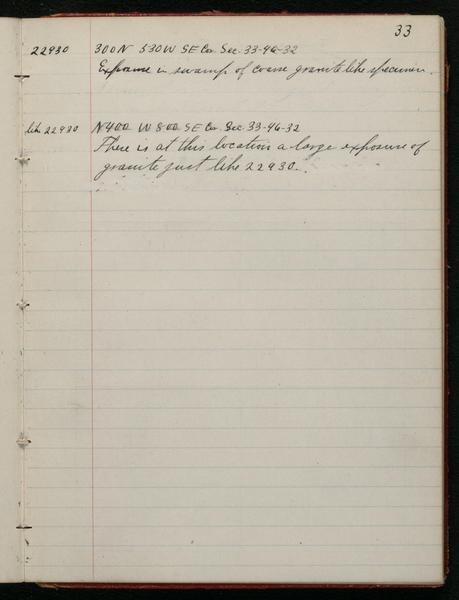 33
22930 300N 530W SE Co. Sec. 33-46-32
Exposure in swamp of coarse granite like specimen.
like 22930 N400 W800 SE Co. Sec. 33-46-32
There is at this location a large exposure of
granite just like 22930.